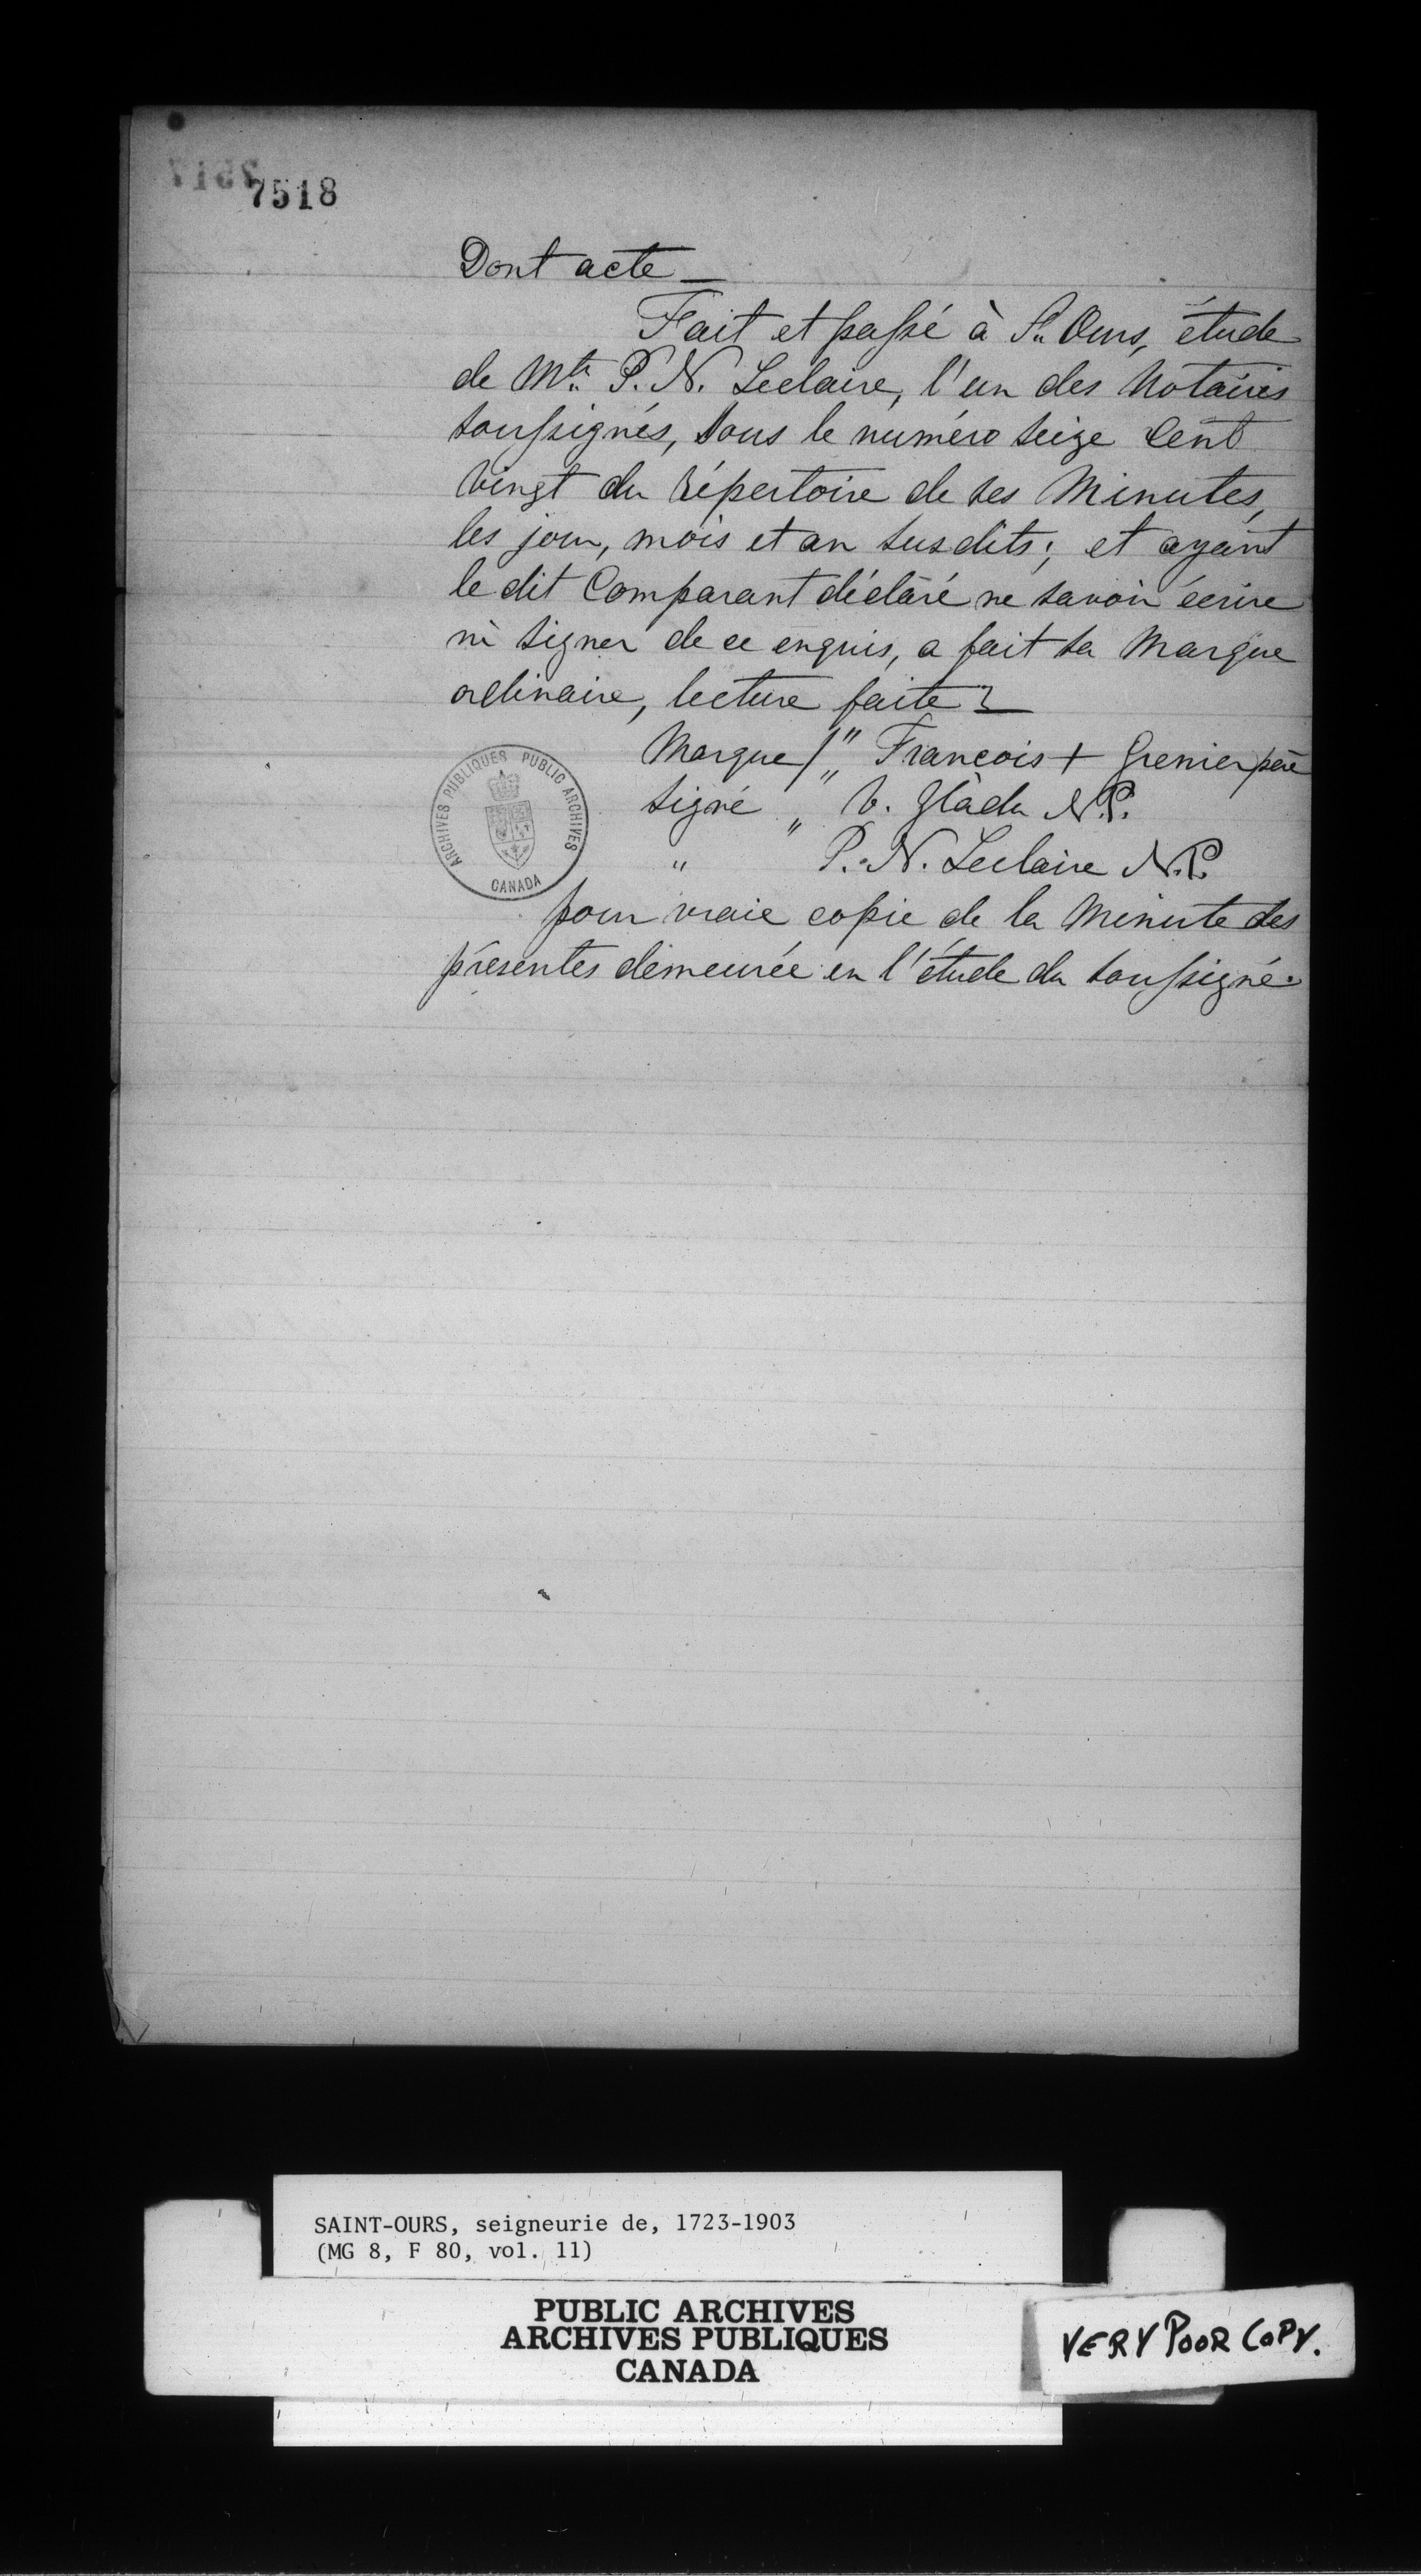 7518
Dont acte —
Fait et passé à St. Ours, étude
de Mtre P. N. Leclaire, l'un des Notaires
soussignés, sous le numéro seize Cent
vingt du répertoire de ses Minutes,
les jour, mois et an susdits; et ayant
le dit Comparant déclaré ne savoir écrire
ni signer de ce enquis, a fait sa Marque
ordinaire, lecture faite —
Marque / " François + Grenier père
signé " V. Gladu N.P.
" P. N. Leclaire N.P.
pour vraie copie de la Minute des
présentes demeurée en l'étude du soussigné.
ARCHIVES PUBLIQUES PUBLIC ARCHIVES
CANADA
SAINT-OURS, seigneurie de, 1723-1903
(MG 8, F 80, vol. 11)
PUBLIC ARCHIVES
ARCHIVES PUBLIQUES
CANADA
VERY POOR COPY.